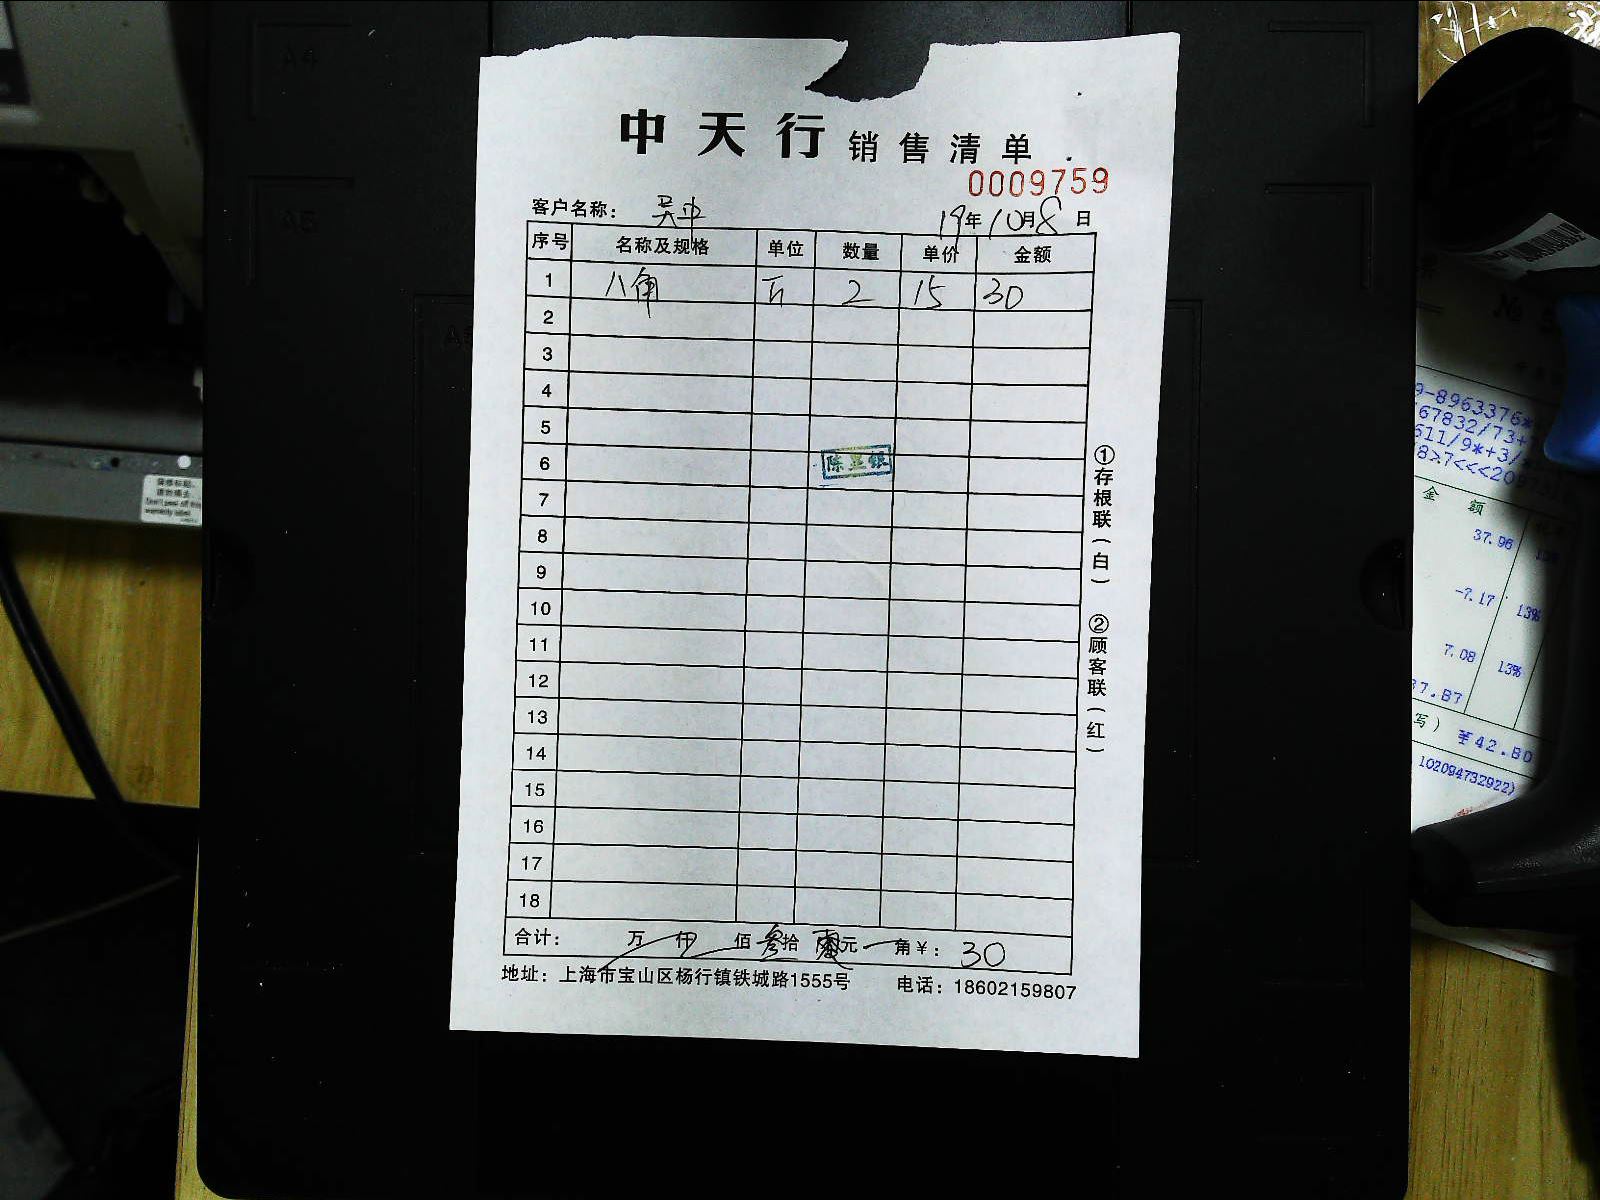 中天行 销售清单
0009759
客户名称：
19年10月8日
序号 名称及规格 单位 数量 单价 金额
1 八角 斤 2 15 30
2
3
4
5
6
陈显银
7
8
9
10
11
12
13
14
15
16
17
18
合计： 万 仟 佰 叁拾 零元 角￥：30
地址：上海市宝山区杨行镇铁城路1555号 电话：18602159807
①存根联(白) ②顾客联(红)
A4
A5
9-8963376*
67832/73+
611/9*+3/
金额
37.96
-7.17 13%
7.08 13%
37.87
写) ¥42.80
102094732922)